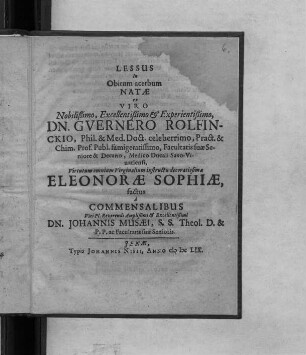 LESSUS
In
Obitum acerbum
NATÆ
VIRO
Nobilissimo, Excellentissimo & Experientissimo,
DN. GVERNERO ROLFIN-
CKIO, Phil. & Med. Doct. celeberrimo, Pract. &
Chim. Prof. Publ. famigeratissimo, Facultatis suæ Se-
niore & Decano, Medico Ducali Saxo-Vi-
nariensi,
Virtutum omnium Virginalium instructu decoratissima
ELEONORÆ SOPHIÆ,
factus
à
COMMENSALIBUS
Viri Pl. Reverendi Amplissimi & Excellentissimi
DN. JOHANNIS MUSÆI, S. S. Theol. D. &
P. P. ac Facultatis suæ
JENÆ,
Typis JOHANNIS NISI, ANNO LIX.